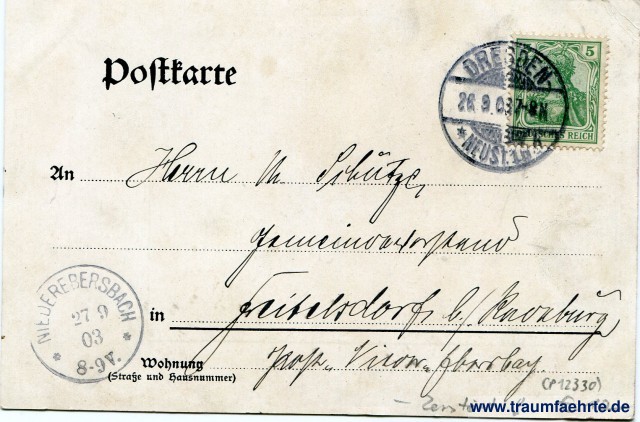 Postkarte
DRESDEN-
26.9.03.7-8N
* NEUST.
5
DEUTSCHES REICH
An Herrn M Schütze,
Gemeindevorstand
in Freitelsdorf b/
NIEDEREBERSBACH
27 9
03
* 8-9V. *
Wohnung
(Straße und Hausnummer)
Post
(P12330)
www.traumfaehrte.de